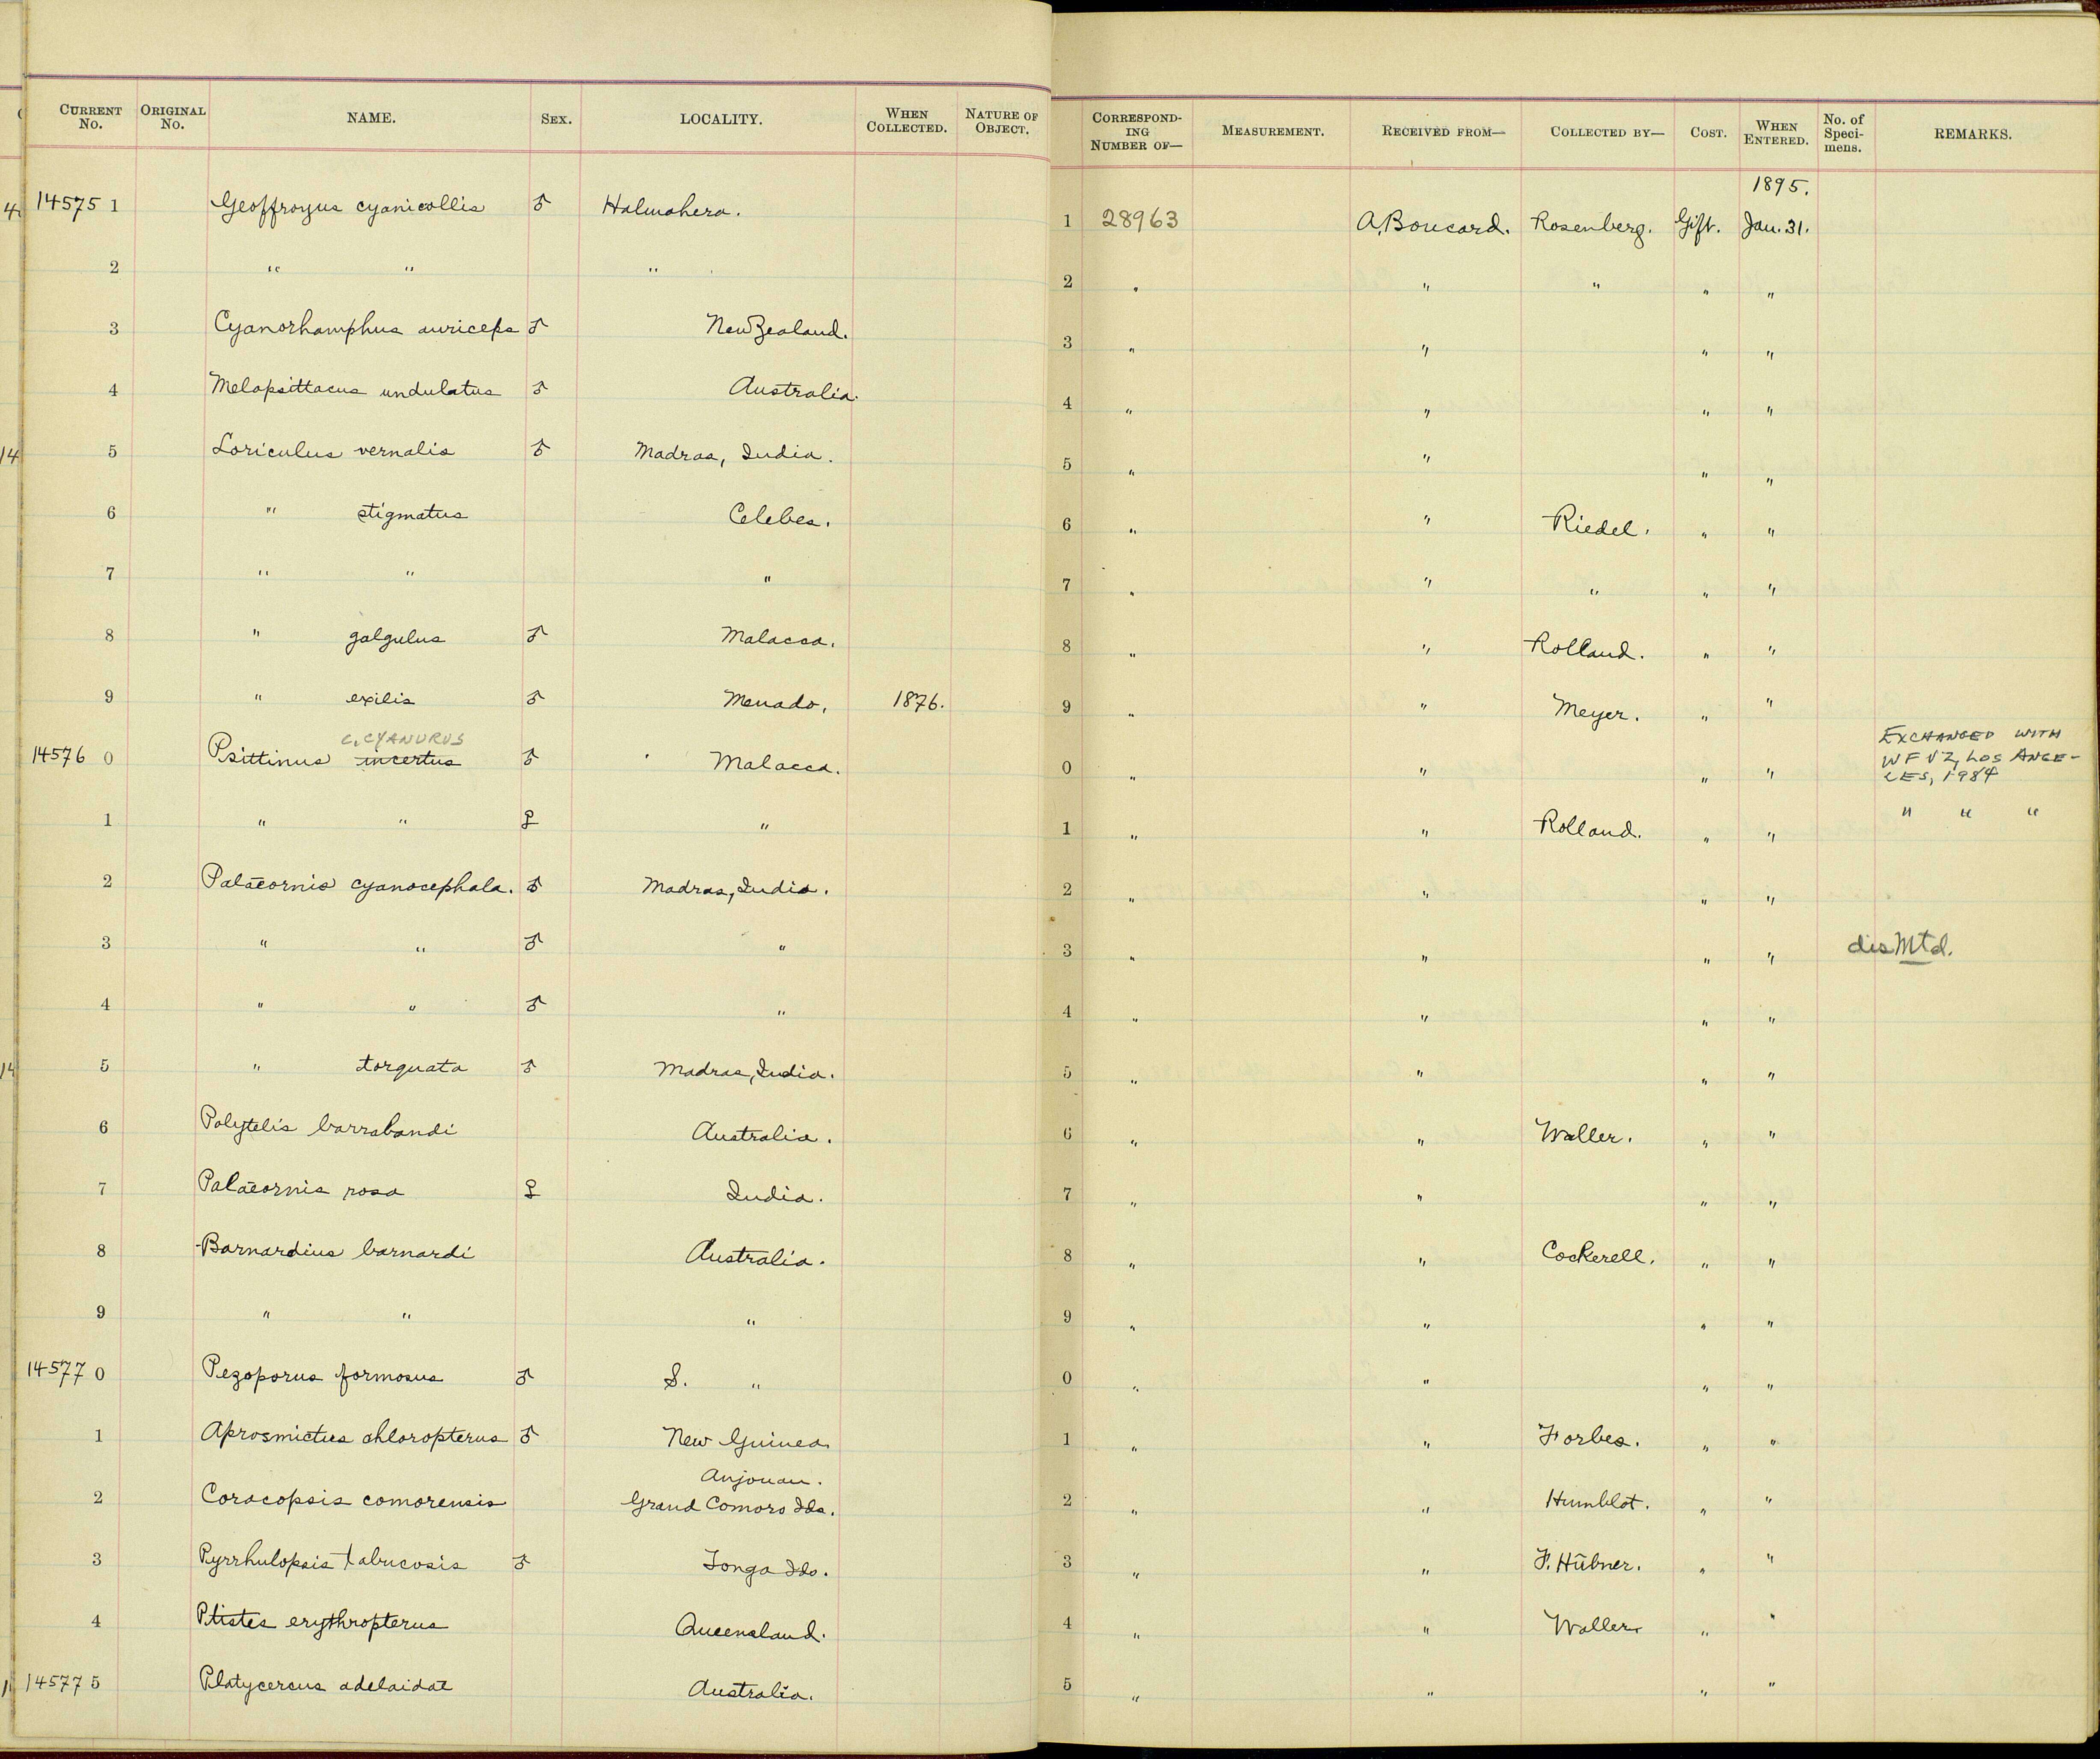 CURRENT No. ORIGINAL No. NAME. SEX. LOCALITY. WHEN COLLECTED. NATURE OF OBJECT. CORRESPONDING NUMBER OF— MEASUREMENT. RECEIVED FROM— COLLECTED BY— COST. WHEN ENTERED. No. of Speci-mens. REMARKS.
1895.
14575 1 Geoffroyus cyanicollis ♂ Halmahera. 1 28963 A. Boucard. Rosenberg. Gift. Jan. 31.
2 " " " 2 " " " " "
3 Cyanorhamphus auriceps ♂ New Zealand. 3 " " " "
4 Melopsittacus undulatus ♂ Australia. 4 " " " "
5 Loriculus vernalis ♂ Madras, India. 5 " " " "
6 " stigmatus Celebes. 6 " " Riedel. " "
7 " " " 7 " " " " "
8 " galgulus ♂ Malacca. 8 " " Rolland. " "
9 " exilis ♂ Menado, 1876. 9 " " Meyer. " "
C. CYANURUS
14576 0 Psittinus incertus ♂ Malacca. 0 " " " " EXCHANGED WITH WFVZ, LOS ANGE-LES, 1984
1 " " ♀ " 1 " " Rolland. " " " " "
2 Palaeornis cyanocephala. ♂ Madras, India. 2 " " " "
3 " " ♂ " 3 " " " " disMtd.
4 " " ♂ " 4 " " " "
5 " torquata ♂ Madras, India. 5 " " " "
6 Polytelis barrabandi Australia. 6 " " Waller. " "
7 Palaeornis rosa ♀ India. 7 " " " "
8 Barnardius barnardi Australia. 8 " " Cockerell. " "
9 " " " 9 " " " "
14577 0 Pezoporus formosus ♂ S. " 0 " " " "
1 Aprosmictus chloropterus ♂ New Guinea 1 " " Forbes. " "
Anjouan.
2 Coracopsis comorensis Grand Comoro Ids. 2 " " Humblot. " "
3 Pyrrhulopsis tabucosis ♂ Tonga Ids. 3 " " F. Hübner. " "
4 Ptistes erythropterus Queensland. 4 " " Waller " "
14577 5 Platycercus adelaidae Australia. 5 " " " "